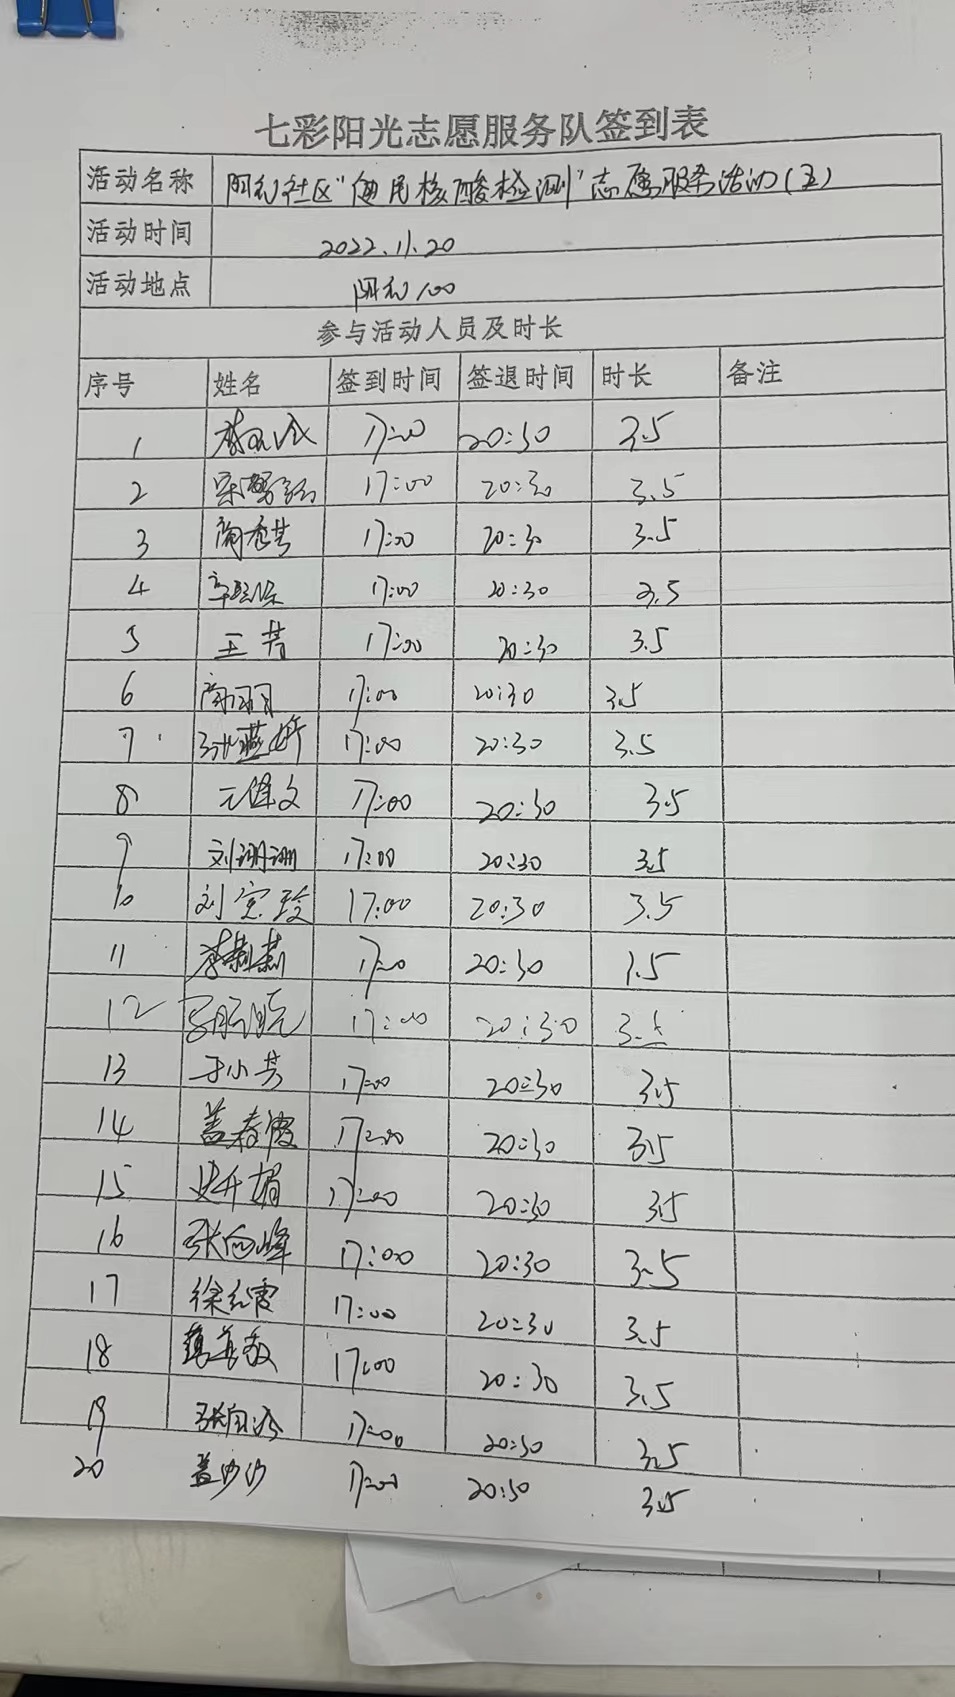 七彩阳光志愿服务队签到表
活动名称 阳光社区"便民核酸检测"志愿服务活动(五)
活动时间 2022.11.20
活动地点 阳光100
参与活动人员及时长
序号 姓名 签到时间 签退时间 时长 备注
1 17:00 20:30 3.5
2 17:00 20:30 3.5
3 17:00 20:30 3.5
4 17:00 20:30 3.5
5 王芳 17:00 20:30 3.5
6 17:00 20:30 3.5
7 17:00 20:30 3.5
8 元伟文 17:00 20:30 3.5
9 刘珊珊 17:00 20:30 3.5
10 刘宪玲 17:00 20:30 3.5
11 李莉莉 17:00 20:30 3.5
12 17:00 20:30 3.5
13 于小芳 17:00 20:30 3.5
14 盖春霞 17:00 20:30 3.5
15 史开娟 17:00 20:30 3.5
16 张向峰 17:00 20:30 3.5
17 徐红霞 17:00 20:30 3.5
18 17:00 20:30 3.5
19 17:00 20:30 3.5
20 盖沙沙 17:00 20:30 3.5